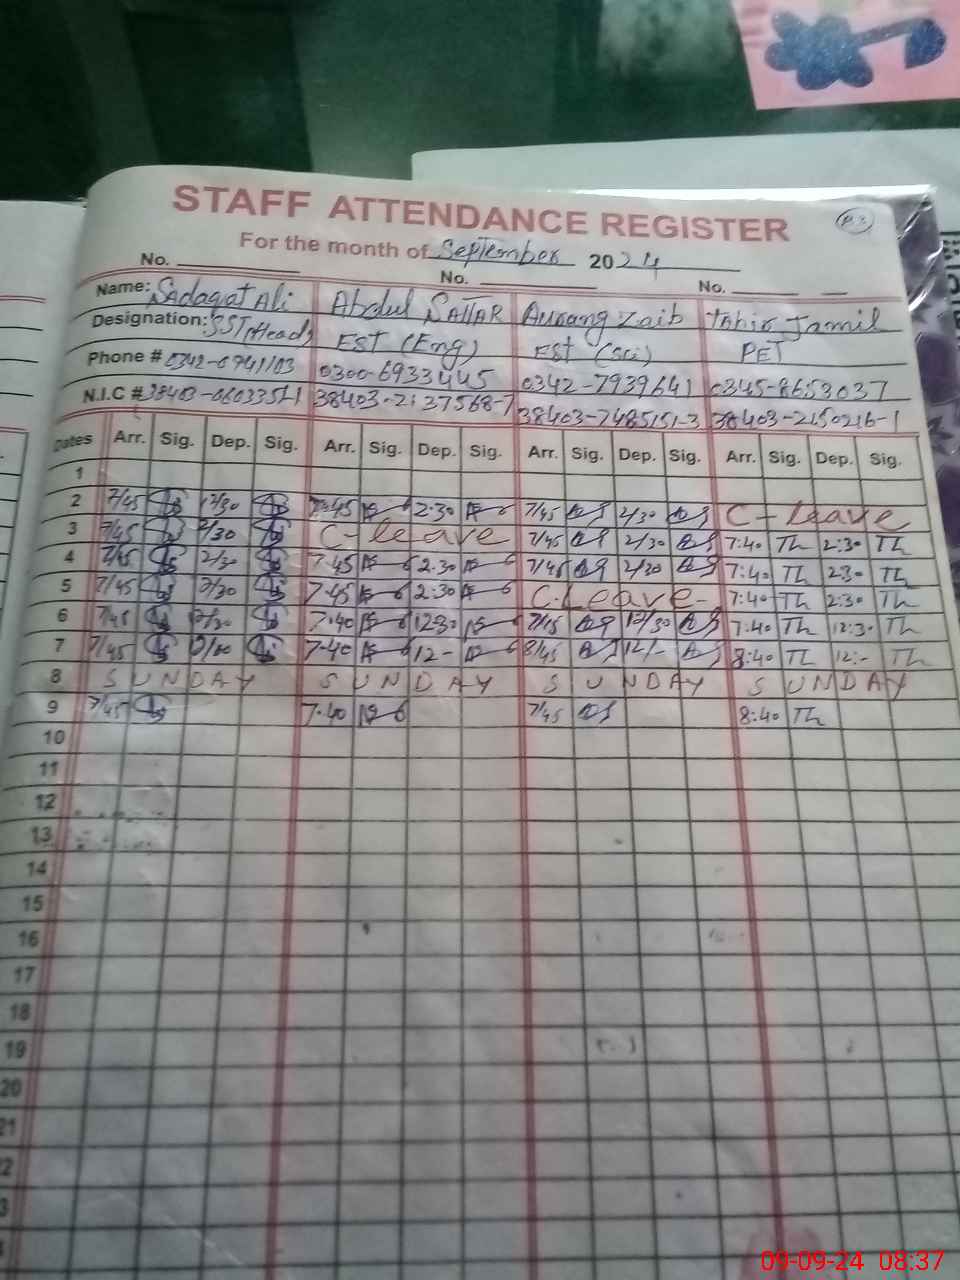 STAFF ATTENDANCE REGISTER
P3
For the month of September 2024
No. No. No.
Name: Sadaqat Ali Abdul SATTAR Aurang Zaib Tahir Jamil
Designation: SST (Head) EST (Eng) EST (Sci) PET
Phone # 0342-6741103 0300-6933445 0342-7939641 0345-8653037
N.I.C # 38403-2137568-7 38403-7485151-3 38403-2150216-1
Dates Arr. Sig. Dep. Sig. Arr. Sig. Dep. Sig. Arr. Sig. Dep. Sig. Arr. Sig. Dep. Sig.
1
2 7/45 12/30 7.45 2.30 7/45 2/30 C-leave
3 7/45 2/30 C-leave 7/45 2/30 7:40 Th 2:30 Th
4 7/45 2/30 7.45 2.30 7/45 2/30 7:40 Th 2:30 Th
5 7/45 2/30 7.45 2:30 C.Leave- 7:40 Th 2:30 Th
6 7/45 12/30 7.40 12.30 7/45 12/30 7:40 Th 12:30 Th
7 7/45 7.40 12- 8/45 12/- 8:40 Th 12:- Th
8 SUNDAY SUNDAY SUNDAY SUNDAY
9 7/45 7.40 7/45 8:40 Th
10
11
12
13
14
15
16
17
18
19
20
21
09-09-24 08:37